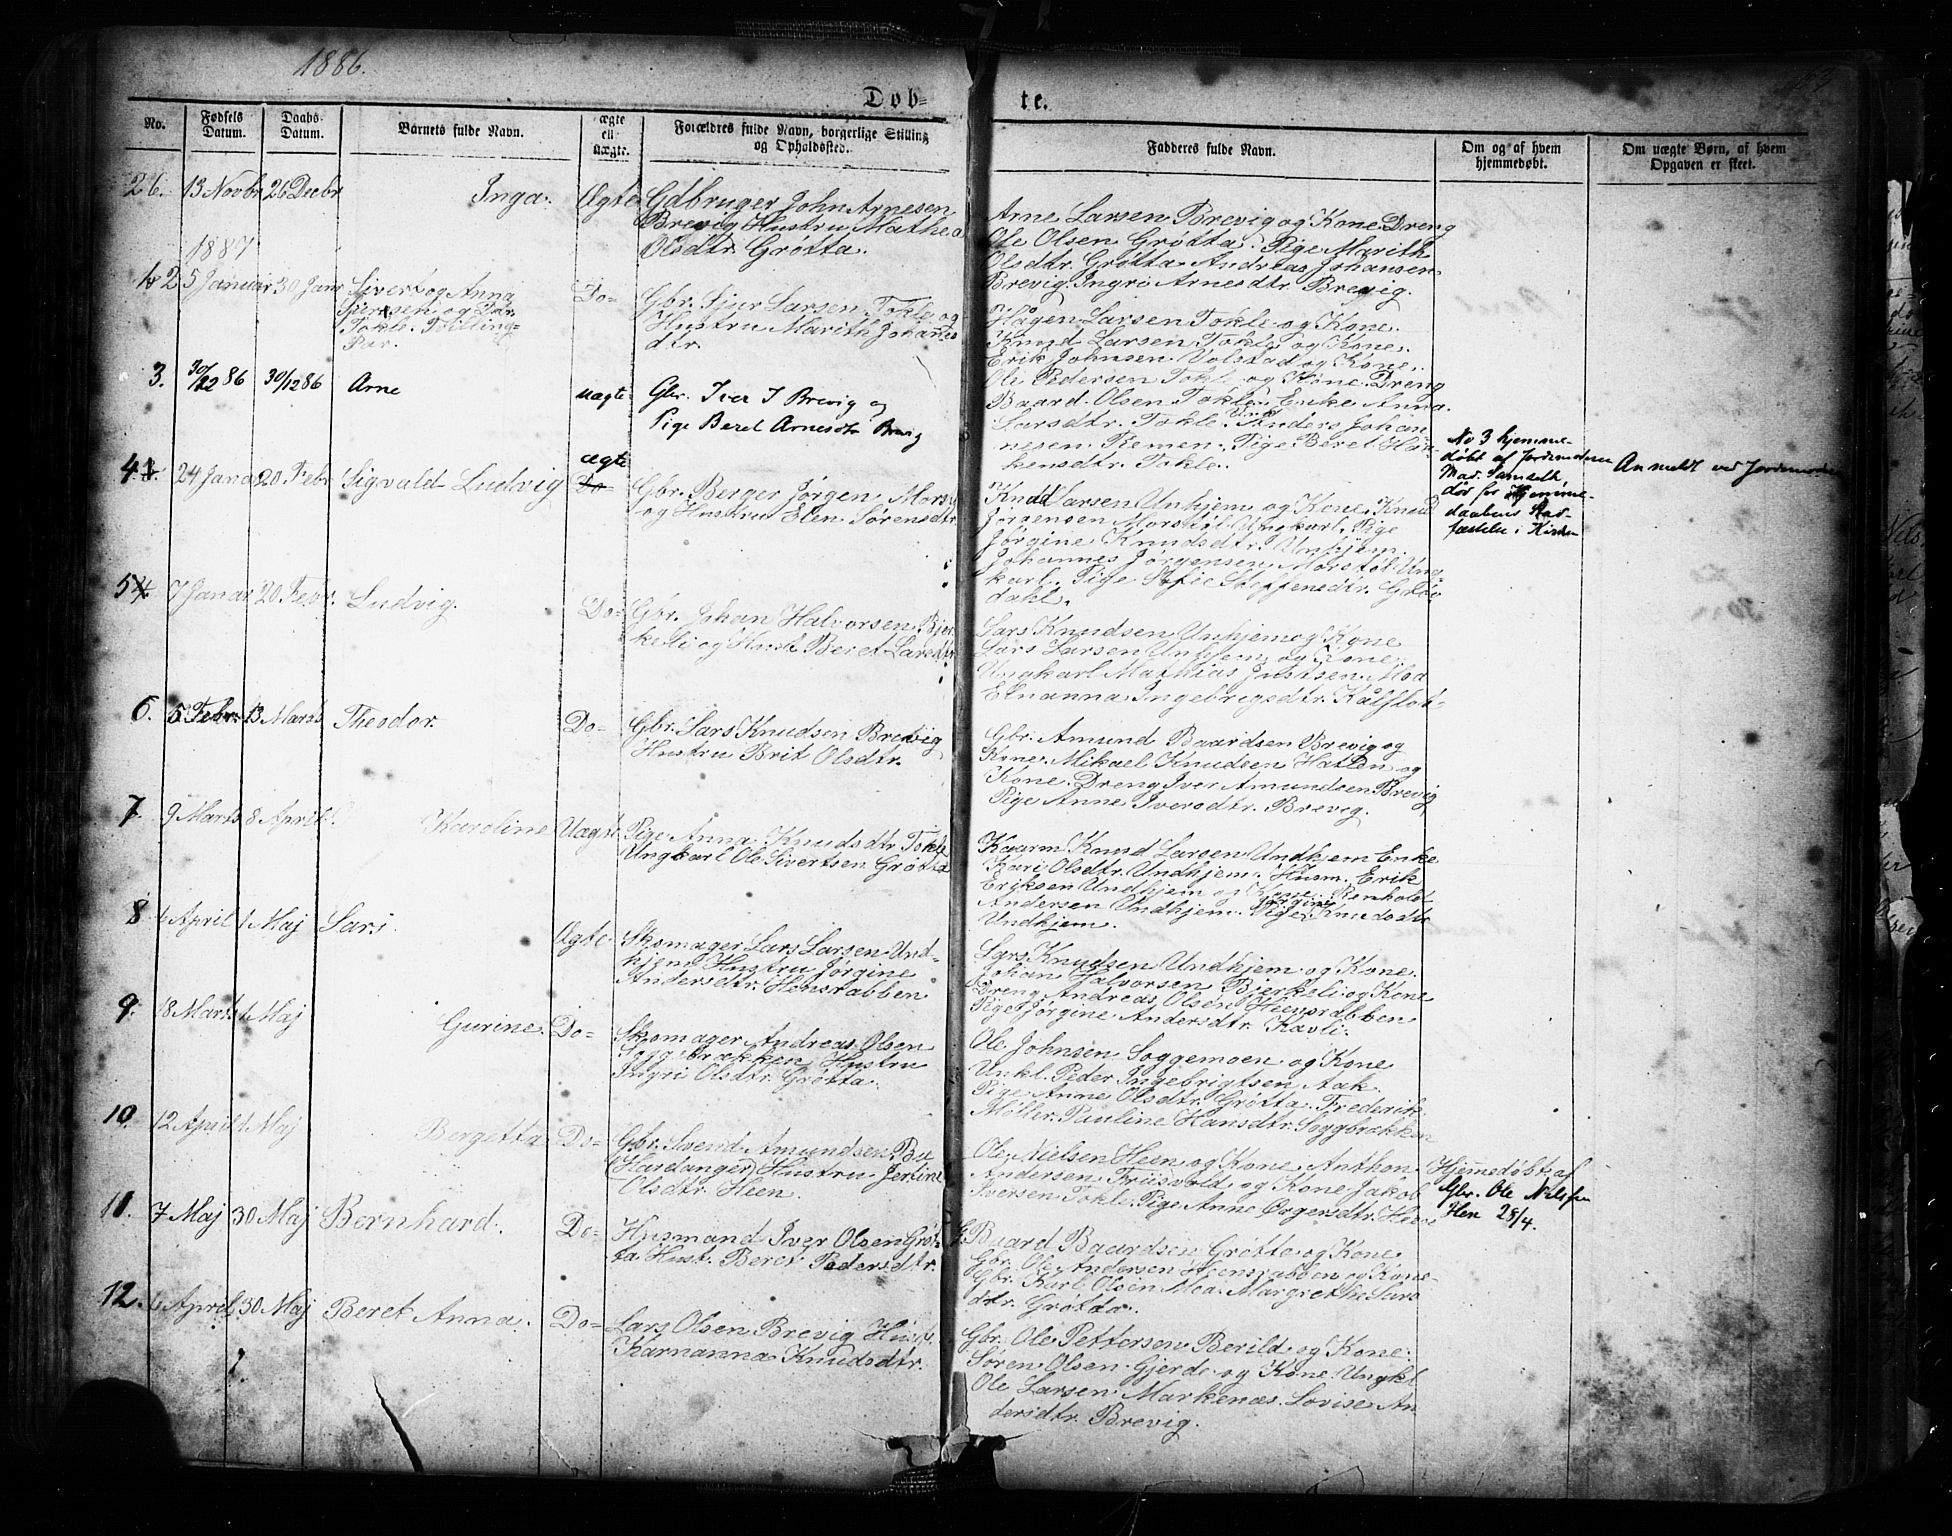 1886.
153
Døb-
te.
No.
Fødsels Datum.
Daabs-Datum.
Barnets fulde Navn.
ægte ell. uægte.
Forældres fulde Navn, borgerlige Stilling og Opholdssted.
Fadderes fulde Navn.
Om og af hvem hjemmedøbt.
Om uægte Børn, af hvem Opgaven er skeet.
26. 13 Novbr 26 Decbr Inga. Ægte Gdbruger John Arnesen
Brevig Hustru Mathea
Olsdtr. Grøtta.
Arne Larsen Brevig og Kone Dreng
Ole Olsen Grøtta. Pige Marith
Olsdtr. Grøtta. Andreas Johansen
Brevig. Ingri Arnesdtr. Brevig.
1887
1 2 5 Januar 30 Janr Sivert og Anna
Sjursen og Dtr.
Tokle. Tvilling-
Par.
Do- Gbr. Sjur Larsen Tokle og
Hustru Marith Johans
dtr.
Hågen Larsen Tokle og Kone.
Knud Larsen Tokle og Kone.
Erik Johnsen Volstad og Kone.
Ole Pedersen Tokle og Kone. Dreng
Baard Olsen Tokle. Enke Anna
Larsdtr. Tokle. Unk. Anders Johan
nesen Remen. Pige Beret Haa
kensdtr. Tokle.
3. 30/12 86 30/12 86 Arne uægte Gbr. Iver I Brevig og
Pige Beret Arnesdtr Brevig
No 3 hjemme-
døbt af Jordemoderen
Mad. Samseth,
dør før Hjemme-
daabens Stad-
fæstelse i Kirken
Anmeldt ved Jordemoder
4 24 Janr 20 Febr Sigvald Ludvig ægte Do- Gbr. Berger Jørgen. Morst
og Hustru Elen Sørensdtr
Knud Larsen Unhjem og Kone. Knud
Jørgensen Morstøl Ungkarl. Pige
Jørgine Knudsdtr. Unhjem.
Johannes Jørgensen Morstøl Ung-
karl. Pige Sofie Steffensdtr. Grøv
dahl.
5 7 Janar 20 Febr. Ludvig. Do- Gbr. Johan Halvorsen Bjer
keli og Hust. Beret Larsdtr
Lars Knudsen Unhjem og Kone
Lars Larsen Unhjem og Kone.
Ungkarl Mathias Justsen. Mea
Elnanna Ingebrigsdtr. Kålflot.
6. 5 Febr. 13 Marts Theodor. Do- Gbr. Lars Knudsen Brevig
Hustru Brit Olsdtr.
Gbr. Amund Baardsen Brevig og
Kone. Mikael Knudsen Hatlen og
Kone. Dreng Iver Amundsen Brevig
Pige Anne Iversdtr. Brevig.
7 9 Marts 8 April Karoline Uægte Pige Anna Knudsdtr Tokle
Ungkarl Ole Sivertsen Grøtta
Kaarm Knud Larsen Undhjem Enke
Kari Olsdtr. Undhjem. Husm. Erik
Eriksen Undhjem og Kone. Renholdt
Andersen Undhjem. Pige Jørgine Knudsdtr
Undhjem.
8 4 April 1 Maj Lars. Ægte. Skomager Lars Larsen Und-
hjem Hustru Jørgine
Andersdtr. Hensrabben
Lars Knudsen Undhjem og Kone.
Johan Halvorsen Bjerkeli og Kone
Dreng Andreas Olsen Heensrabben
Pige Jørgine Andersdtr. Kavli.
9. 18 Marts 1 Maj Gurine. Do- Skomager Andreas Olsen
Soggebrækken Hustru
Ingri Olsdtr. Grøtta.
Ole Johnsen Soggemoen og Kone
Unkl. Peder Ingebrigtsen Aak.
Pige Anne Olsdtr. Grøtta. Frederik
Møller. Pauline Hansdtr. Soggbrækken
10. 12 April 1 Maj Bergetta Do- Gbr. Svend Amundsen Bu
(Hardanger) Hustru Jertine
Olsdtr. Heen.
Ole Nielsen Heen og Kone. Anthon
Andersen Friisvold og Kone. Jakob
Iversen Tokle. Pige Anne Ørgersdtr. Heen
Hjemedøbt af
Gbr. Ole Nilssen
Hen 28/4.
11. 7 Maj 30 Maj Bernhard. Do- Husmand Iver Olsen Grøt-
ta Hust. Beret Pedersdtr.
G. Baard Baardsen Grøtta og Kone
Gbr. Ole Andersen Heensrabben og Kone-
Gbr. Karl Olsen Mea. Margrethe Lars
dtr. Grøtta.
12. 4 April 30 Maj Beret Anna. Do- Lars Olsen Brevig Hust.
Karnanna Knudsdtr.
Gbr. Ole Pettersen Berild og Kone.
Søren Olsen Gjerde og Kone. Ungkl
Ole Larsen Markenæs. Lovise An
dersdtr. Brevig.